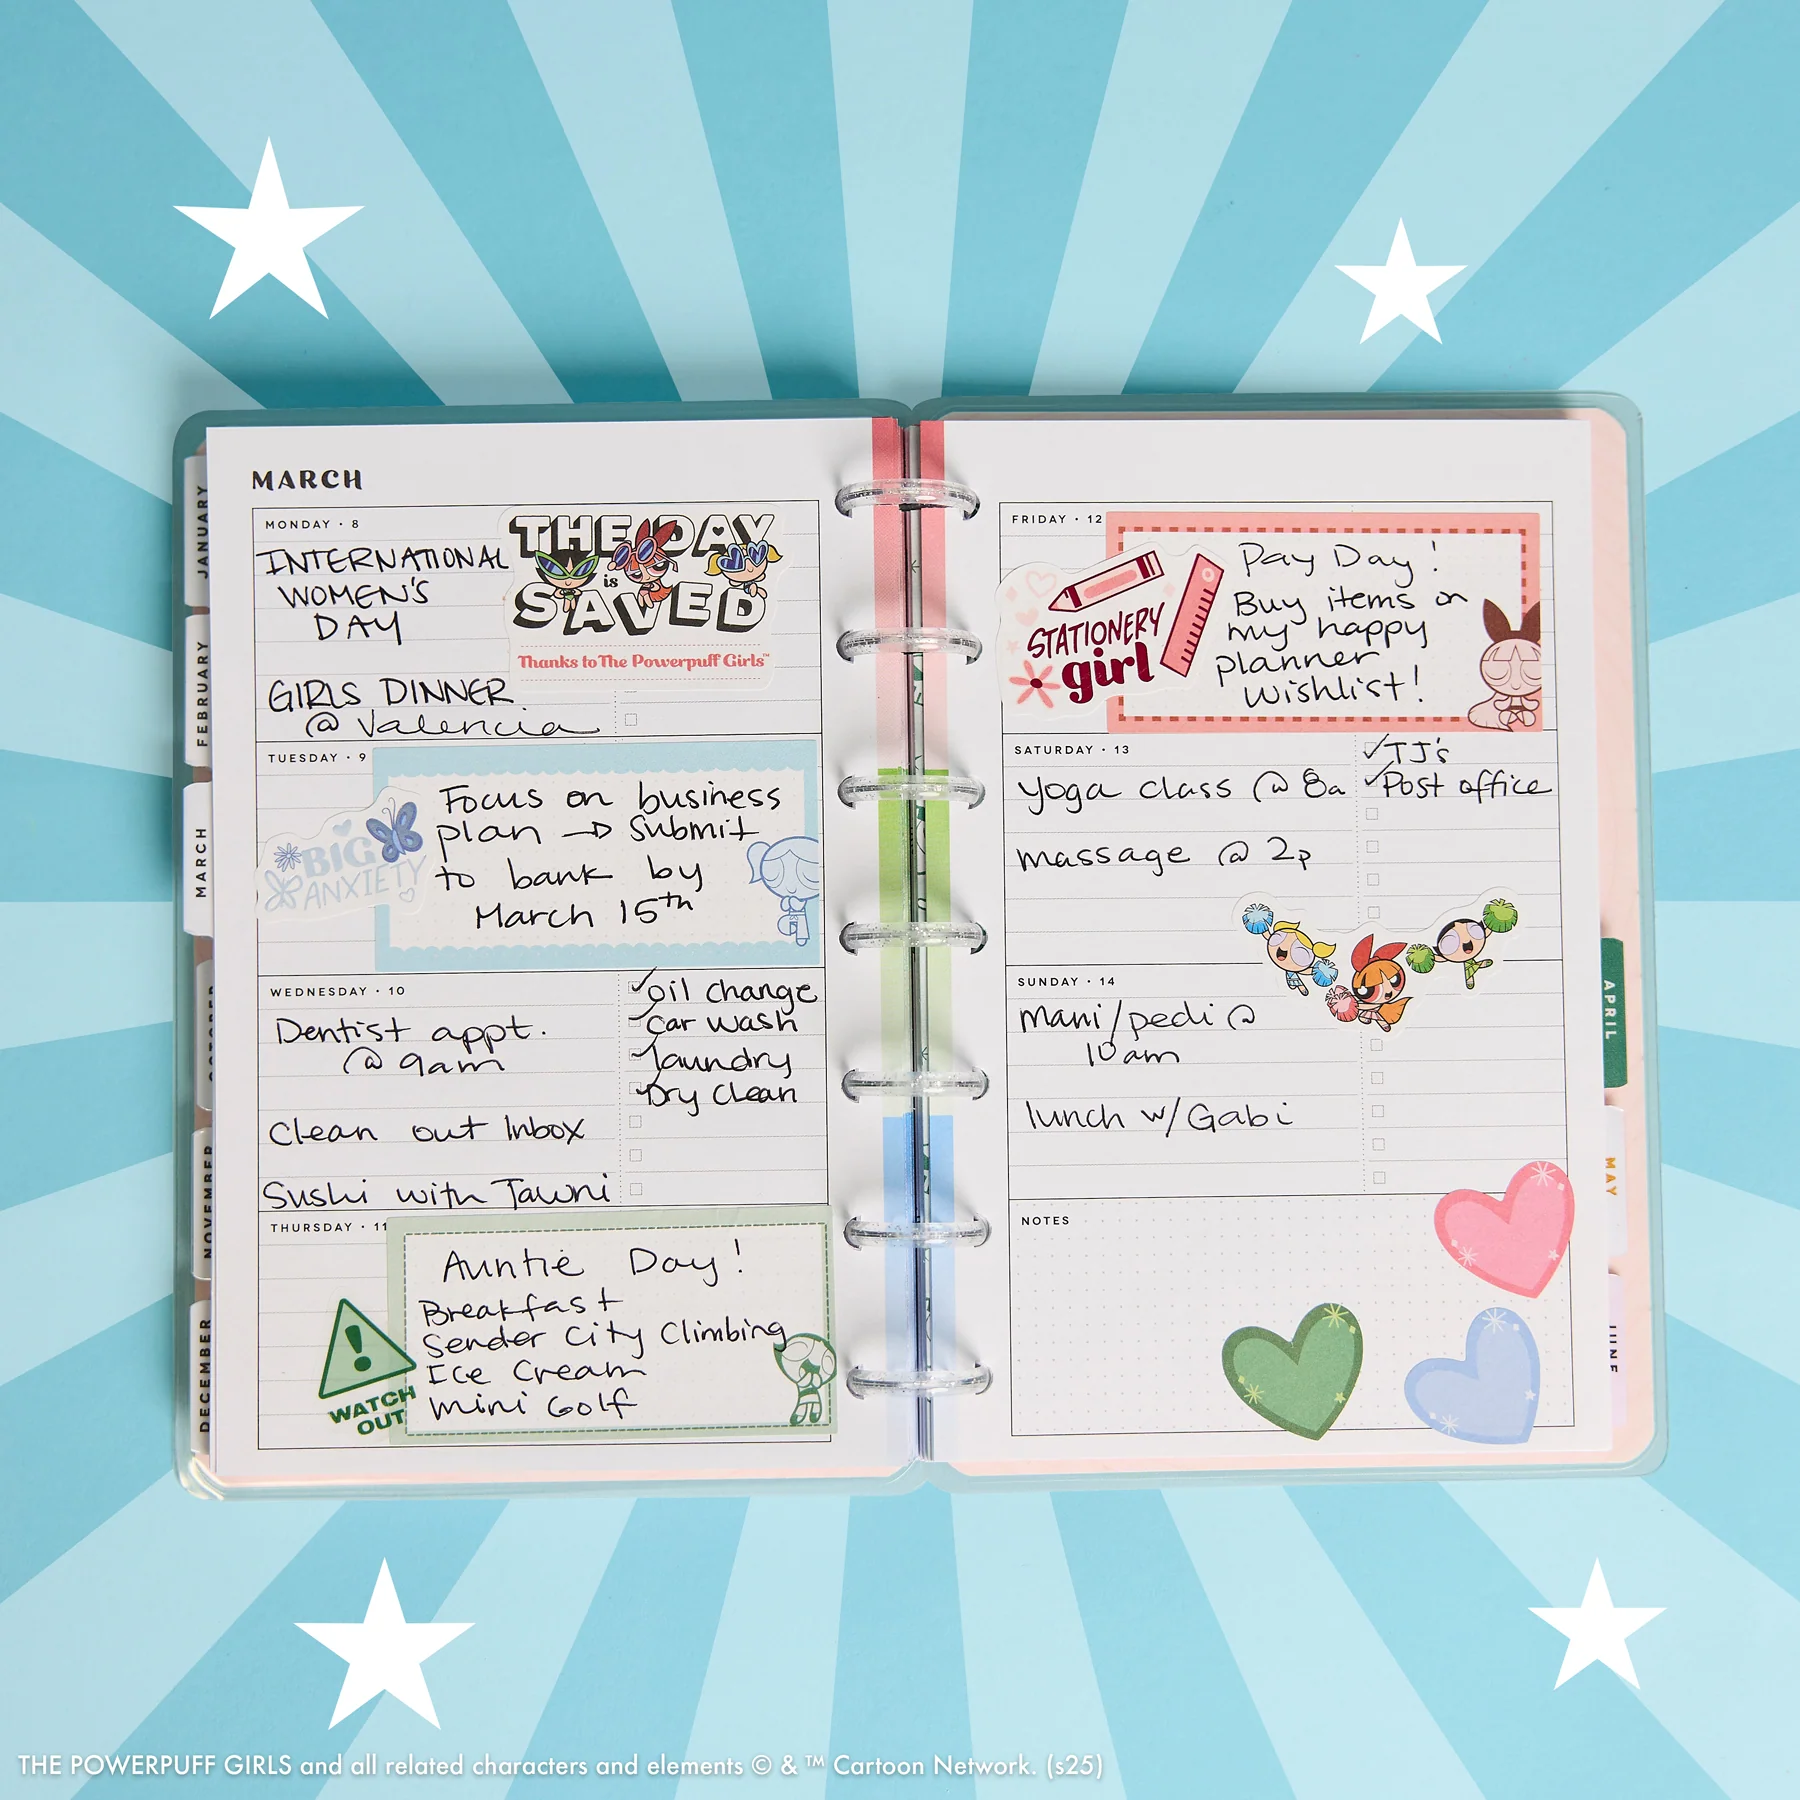 MARCH
MONDAY · 8
INTERNATIONAL
WOMEN'S
DAY
GIRLS DINNER
@ Valencia
THE DAY
is
SAVED
Thanks to The Powerpuff Girls™
TUESDAY · 9
BIG
ANXIETY
Focus on business
plan → submit
to bank by
March 15th
WEDNESDAY · 10
Dentist appt.
@ 9am
Clean out Inbox
Sushi with Tawni
oil change
car wash
laundry
Dry Clean
THURSDAY · 11
WATCH
OUT
Auntie Day!
Breakfast
Sender City Climbing
Ice Cream
mini Golf
FRIDAY · 12
STATIONERY
girl
Pay Day!
Buy items on
my happy
planner
wishlist!
SATURDAY · 13
yoga class @ 8a
massage @ 2p
TJ's
Post office
SUNDAY · 14
mani/pedi @
10am
lunch w/ Gabi
NOTES
JANUARY
FEBRUARY
MARCH
OCTOBER
NOVEMBER
DECEMBER
APRIL
MAY
JUNE
THE POWERPUFF GIRLS and all related characters and elements © & ™ Cartoon Network. (s25)